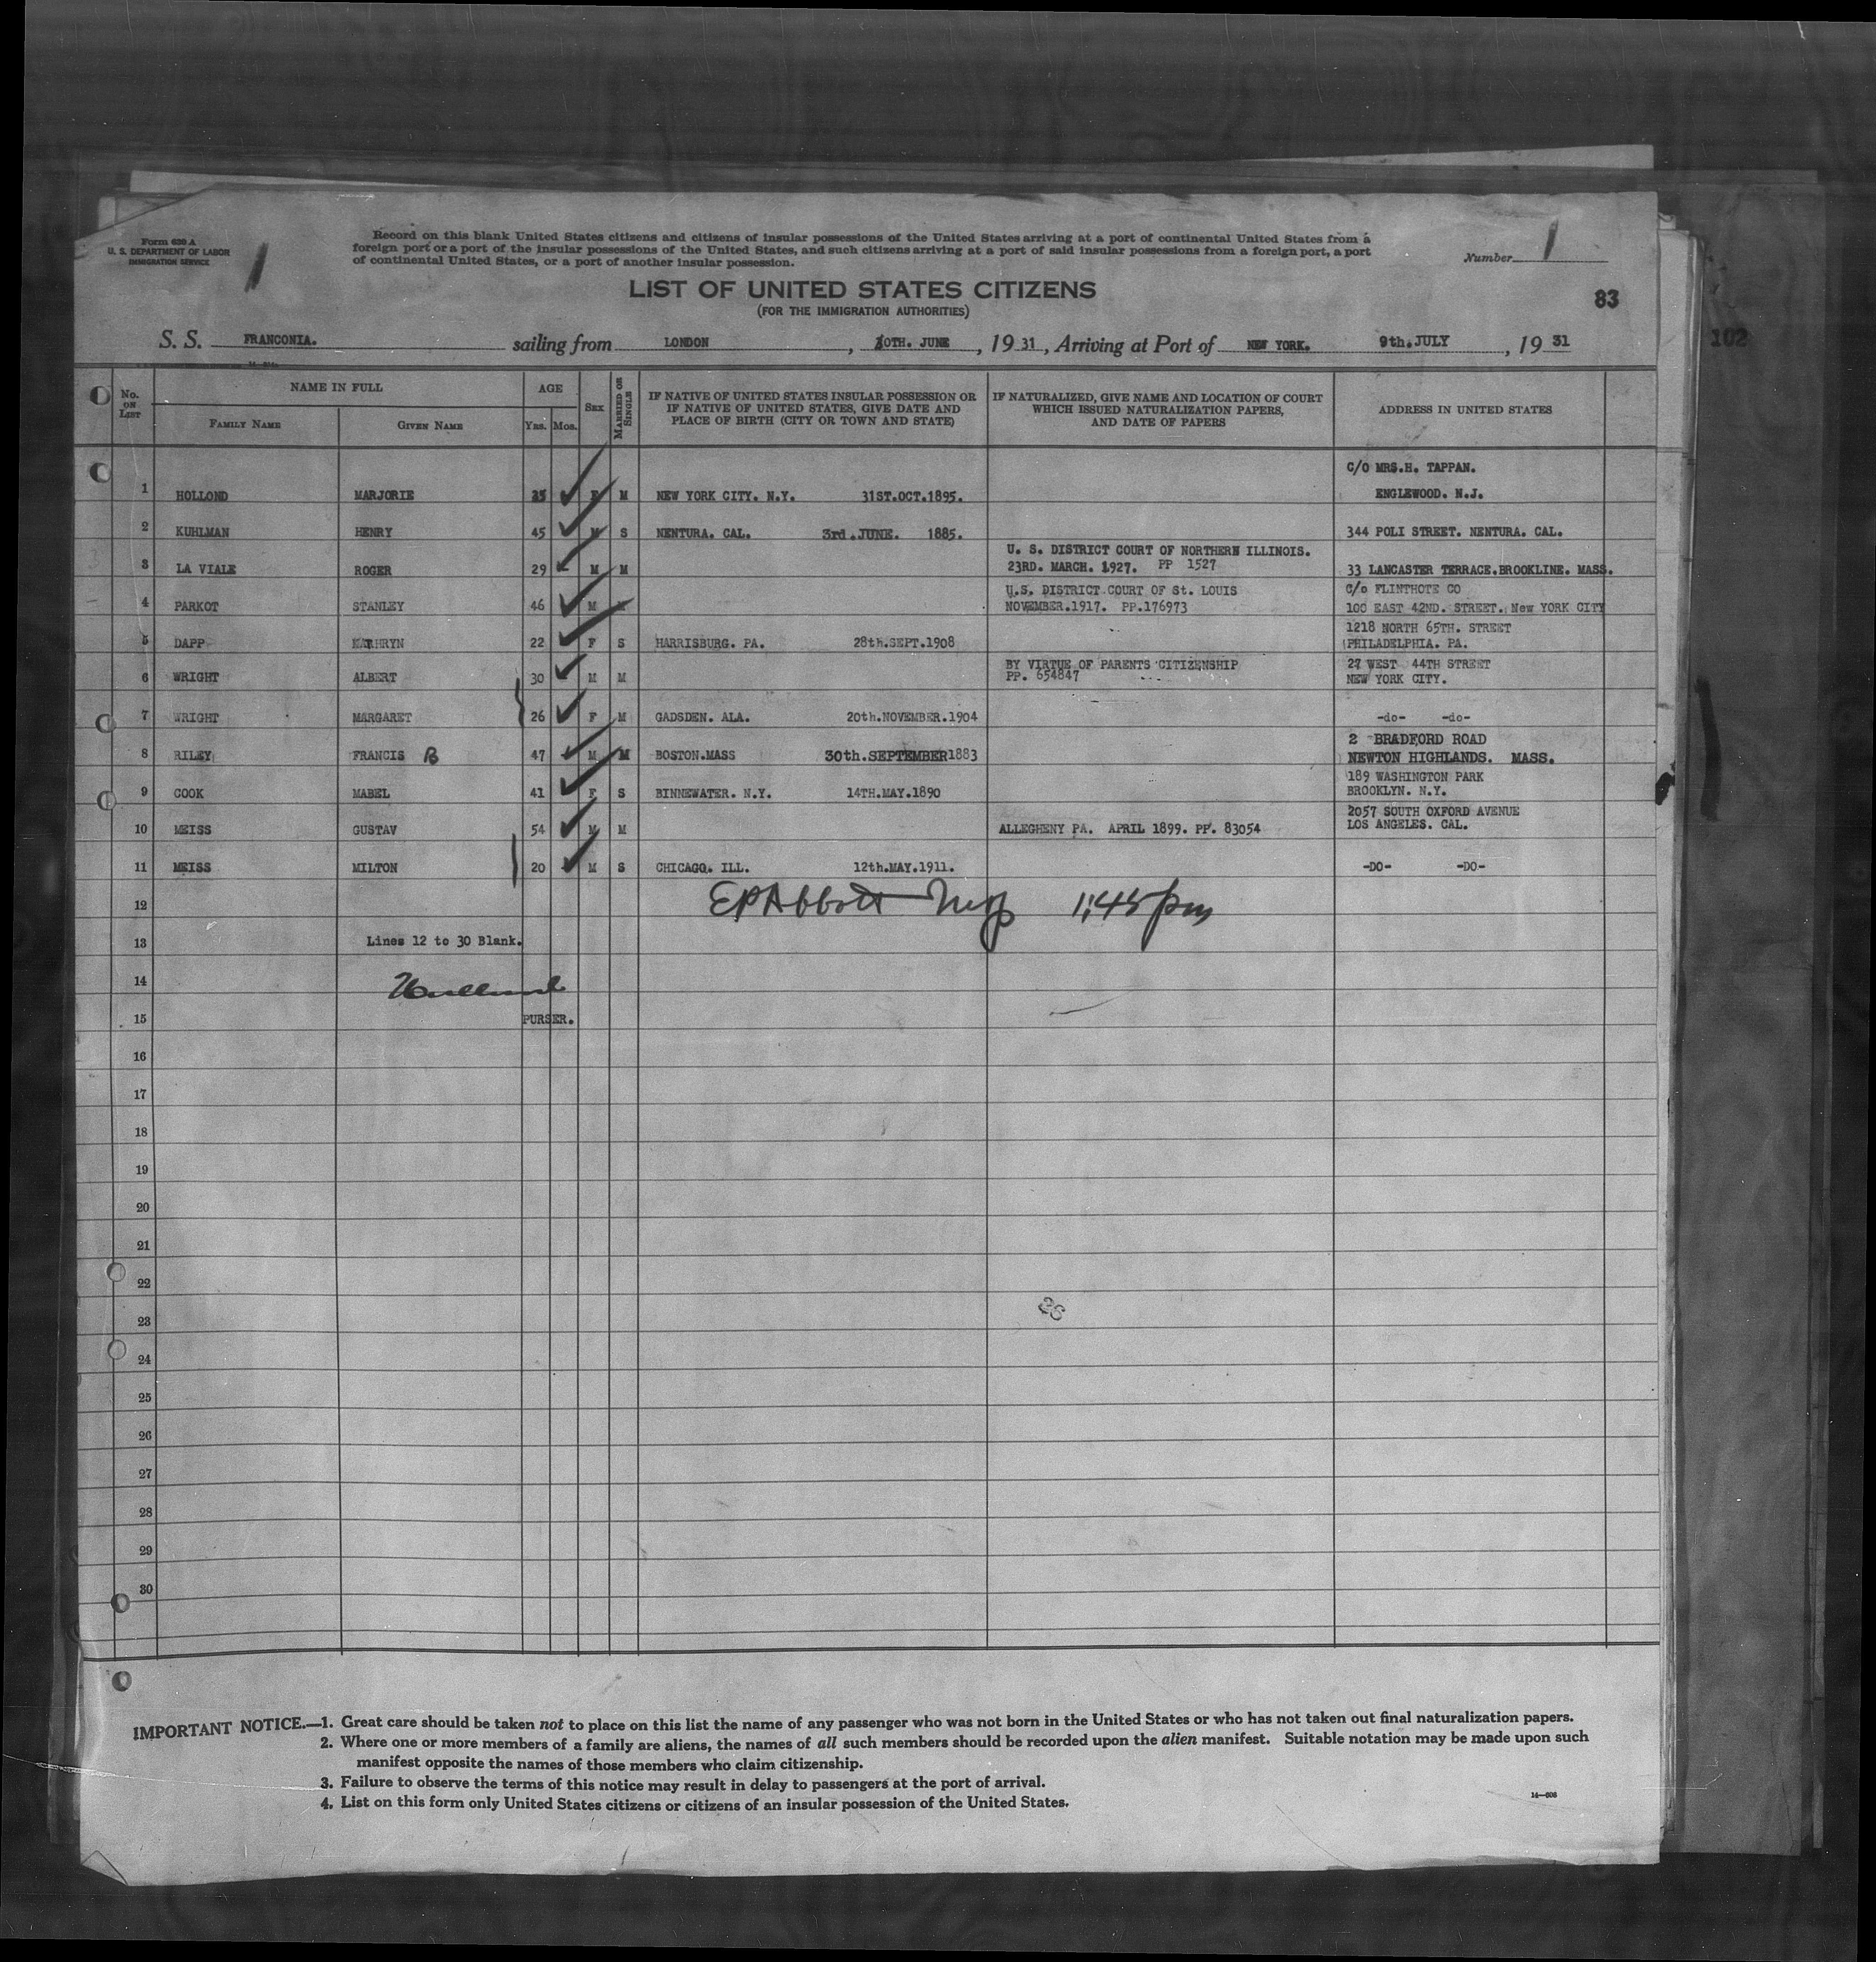 Form 630 A
U. S. DEPARTMENT OF LABOR
IMMIGRATION SERVICE
1
Record on this blank United States citizens and citizens of insular possessions of the United States arriving at a port of continental United States from a
foreign port or a port of the insular possessions of the United States, and such citizens arriving at a port of said insular possessions from a foreign port, a port
of continental United States, or a port of another insular possession.
Number 1
LIST OF UNITED STATES CITIZENS
(FOR THE IMMIGRATION AUTHORITIES)
83
102
S. S. FRANCONIA. sailing from LONDON, OTH. JUNE, 1931, Arriving at Port of NEW YORK. 9th.JULY, 1931
No. ON LIST NAME IN FULL AGE SEX MARRIED OR SINGLE IF NATIVE OF UNITED STATES INSULAR POSSESSION OR IF NATIVE OF UNITED STATES, GIVE DATE AND PLACE OF BIRTH (CITY OR TOWN AND STATE) IF NATURALIZED, GIVE NAME AND LOCATION OF COURT WHICH ISSUED NATURALIZATION PAPERS, AND DATE OF PAPERS ADDRESS IN UNITED STATES
FAMILY NAME GIVEN NAME Yrs. Mos.
C/O MRS.H. TAPPAN.
1 HOLLOND MARJORIE 35 F M NEW YORK CITY. N.Y. 31ST.OCT.1895. ENGLEWOOD. N.J.
2 KUHLMAN HENRY 45 M S NENTURA. CAL. 3rd.JUNE. 1885. 344 POLI STREET. NENTURA. CAL.
U. S. DISTRICT COURT OF NORTHERN ILLINOIS.
3 LA VIALE ROGER 29 M M 23RD. MARCH. 1927. PP 1527 33 LANCASTER TERRACE.BROOKLINE. MASS.
U.S. DISTRICT COURT OF St. LOUIS C/o FLINTHOTE CO
4 PARKOT STANLEY 46 M M NOVEMBER.1917. PP.176973 100 EAST 42ND. STREET. New YORK CITY
1218 NORTH 65TH. STREET
5 DAPP KATHRYN 22 F S HARRISBURG. PA. 28th.SEPT.1908 PHILADELPHIA. PA.
BY VIRTUE OF PARENTS CITIZENSHIP 27 WEST 44TH STREET
6 WRIGHT ALBERT 30 M M PP. 654847 NEW YORK CITY.
7 WRIGHT MARGARET 26 F M GADSDEN. ALA. 20th.NOVEMBER.1904 -do- -do-
2 BRADFORD ROAD
8 RILEY FRANCIS B 47 M M BOSTON.MASS 30th.SEPTEMBER1883 NEWTON HIGHLANDS. MASS.
189 WASHINGTON PARK
9 COOK MABEL 41 F S BINNEWATER. N.Y. 14TH.MAY.1890 BROOKLYN. N.Y.
2057 SOUTH OXFORD AVENUE
10 MEISS GUSTAV 54 M M ALLEGHENY PA. APRIL 1899. PP. 83054 LOS ANGELES. CAL.
11 MEISS MILTON 20 M S CHICAGO. ILL. 12th.MAY.1911. -DO- -DO-
12 EPAbbott 1:45 pm
13 Lines 12 to 30 Blank.
14
15 PURSER.
16
17
18
19
20
21
22
23
24
25
26
27
28
29
30
IMPORTANT NOTICE.—1. Great care should be taken not to place on this list the name of any passenger who was not born in the United States or who has not taken out final naturalization papers.
2. Where one or more members of a family are aliens, the names of all such members should be recorded upon the alien manifest. Suitable notation may be made upon such
manifest opposite the names of those members who claim citizenship.
3. Failure to observe the terms of this notice may result in delay to passengers at the port of arrival.
4. List on this form only United States citizens or citizens of an insular possession of the United States.